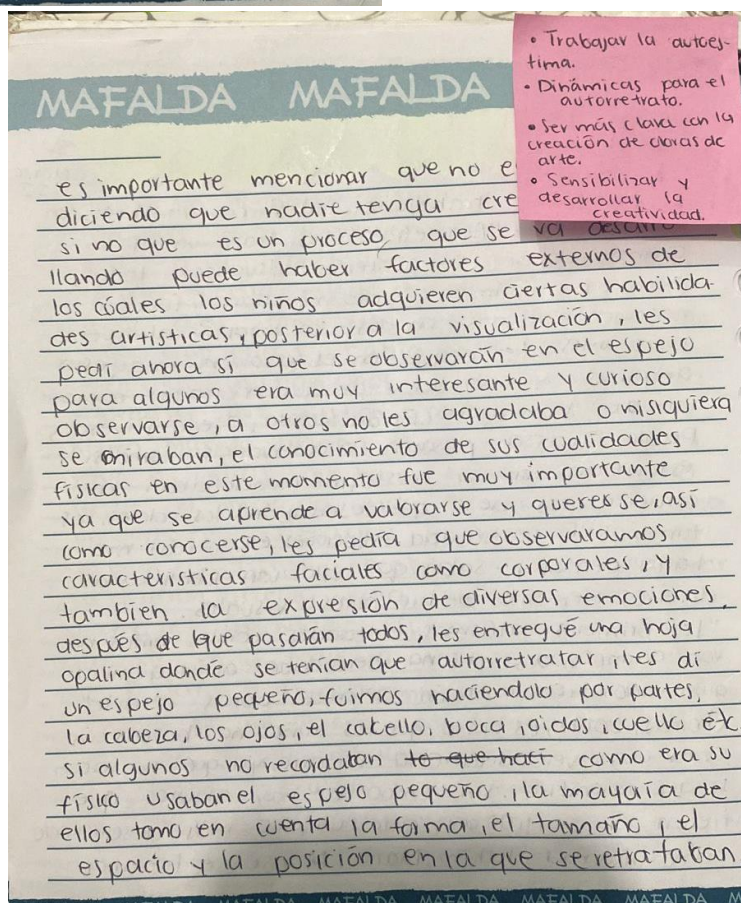 MAFALDA MAFALDA
• Trabajar la autoes-
tima.
• Dinámicas para el
autorretrato.
• Ser más clara con la
creación de obras de
arte.
• Sensibilizar y
desarrollar la
creatividad.
es importante mencionar que no e
diciendo que nadie tenga cre
si no que es un proceso que se va desarro
llando puede haber factores externos de
los cúales los niños adquieren ciertas habilida-
des artisticas, posterior a la visualización, les
pedi ahora sí que se observarán en el espejo
para algunos era muy interesante y curioso
observarse, a otros no les agradaba o nisiquiera
se miraban, el conocimiento de sus cualidades
físicas en este momento fue muy importante
ya que se aprende a valorarse y querer se, asi
como conocerse, les pedía que observaramos
caracteristicas faciales como corporales, y
tambien la expresión de diversas emociones,
después de que pasarán todos, les entregué una hoja
opalina donde se tenian que autorretratar, les di
un espejo pequeño, fuimos haciendolo por partes,
la cabeza, los ojos, el cabello, boca, oidos, cuello etc
si algunos no recordaban to que haci como era su
físico usaban el espejo pequeño, la mayoría de
ellos tomo en cuenta la forma, el tamaño, el
espacio y la posición en la que se retrataban
MAFALDA MAFALDA MAFALDA MAFALDA